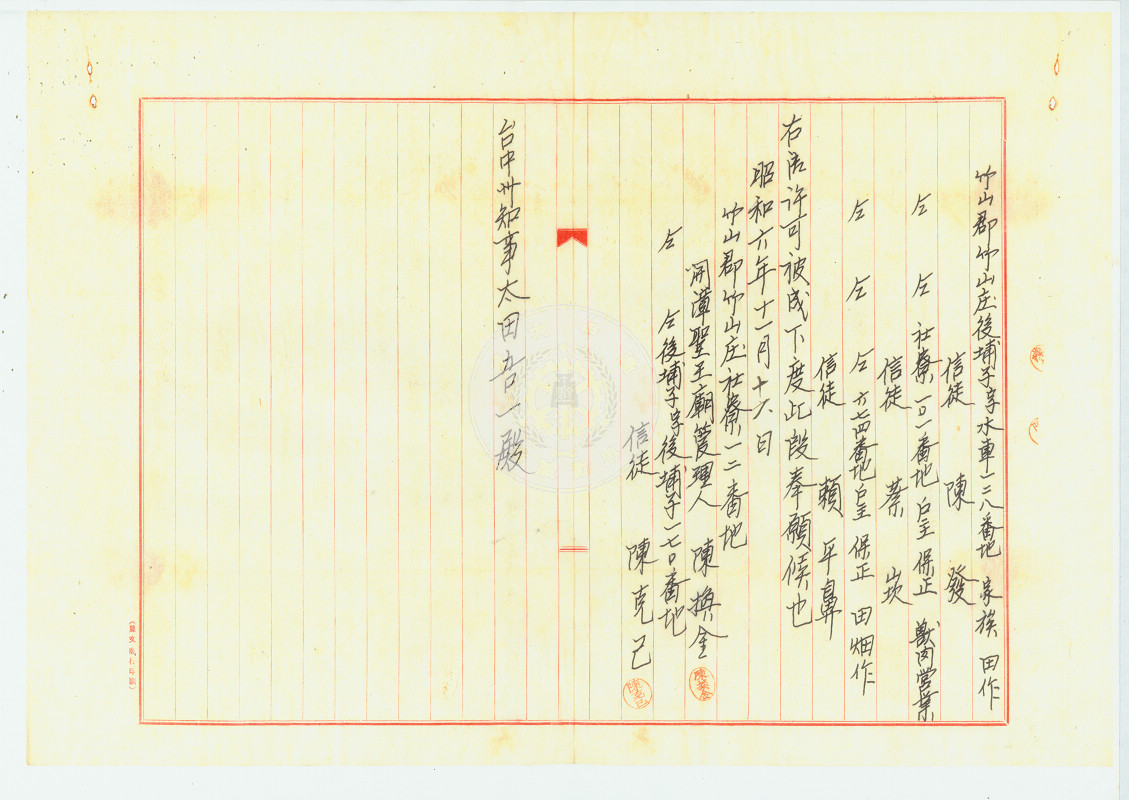 竹山郡竹山庄後埔子字水車一二八番地 家族 田作
信徒 陳發
仝 仝 社寮一〇一番地 戶主 保正 獸肉營業
信徒 蔡崁
仝 仝 仝 六七四番地 戶主 保正 田畑作
信徒 賴平鼻
右御許可被成下度此段奉願候也
昭和六年十一月十六日
竹山郡竹山庄社寮一二番地
開漳聖王廟管理人 陳換金
仝 仝後埔子字後埔子一七〇番地
信徒 陳克己
台中州知事太田吾一殿